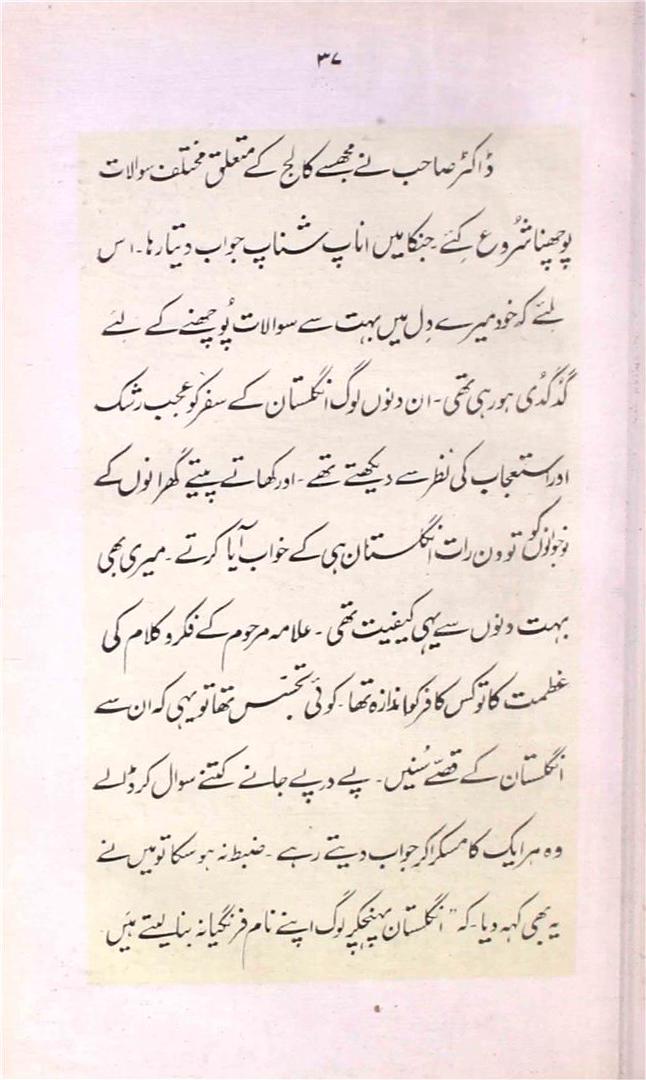 ۳۷
ڈاکٹر صاحب نے مجھسے کالج کے متعلق مختلف سوالات
پوچھنا شُروع کِئے۔ جنکا میں اناپ شناپ جواب دیتا رہا۔ اس
لِئے کہ خود میرے دِل میں بہت سے سوالات پُوچھنے کے لِئے
گُدگُدی ہورہی تھی۔ ان دنوں لوگ انگلستان کے سفر کو عجب رشک
اور استعجاب کی نظر سے دیکھتے تھے۔ اور کھاتے پیتے گھرانوں کے
نوجوانوں کو تو دن رات انگلستان ہی کے خواب آیا کرتے۔ میری بھی
بہت دنوں سے یہی کیفیت تھی۔ علامہ مرحوم کے فکر و کلام کی
عظمت کا تو کس کافر کو اندازہ تھا۔ کوئی تجسّس تھا تو یہی کہ ان سے
انگلستان کے قصّے سُنیں۔ پے درپے جانے کتنے سوال کر ڈالے
وہ ہر ایک کا مسکرا کر جواب دیتے رہے۔ ضبط نہ ہوسکا تو میں نے
یہ بھی کہہ دیا۔ کہ "انگلستان پہنچکر لوگ اپنے نام فرنگیانہ بنا لیتے ہیں۔